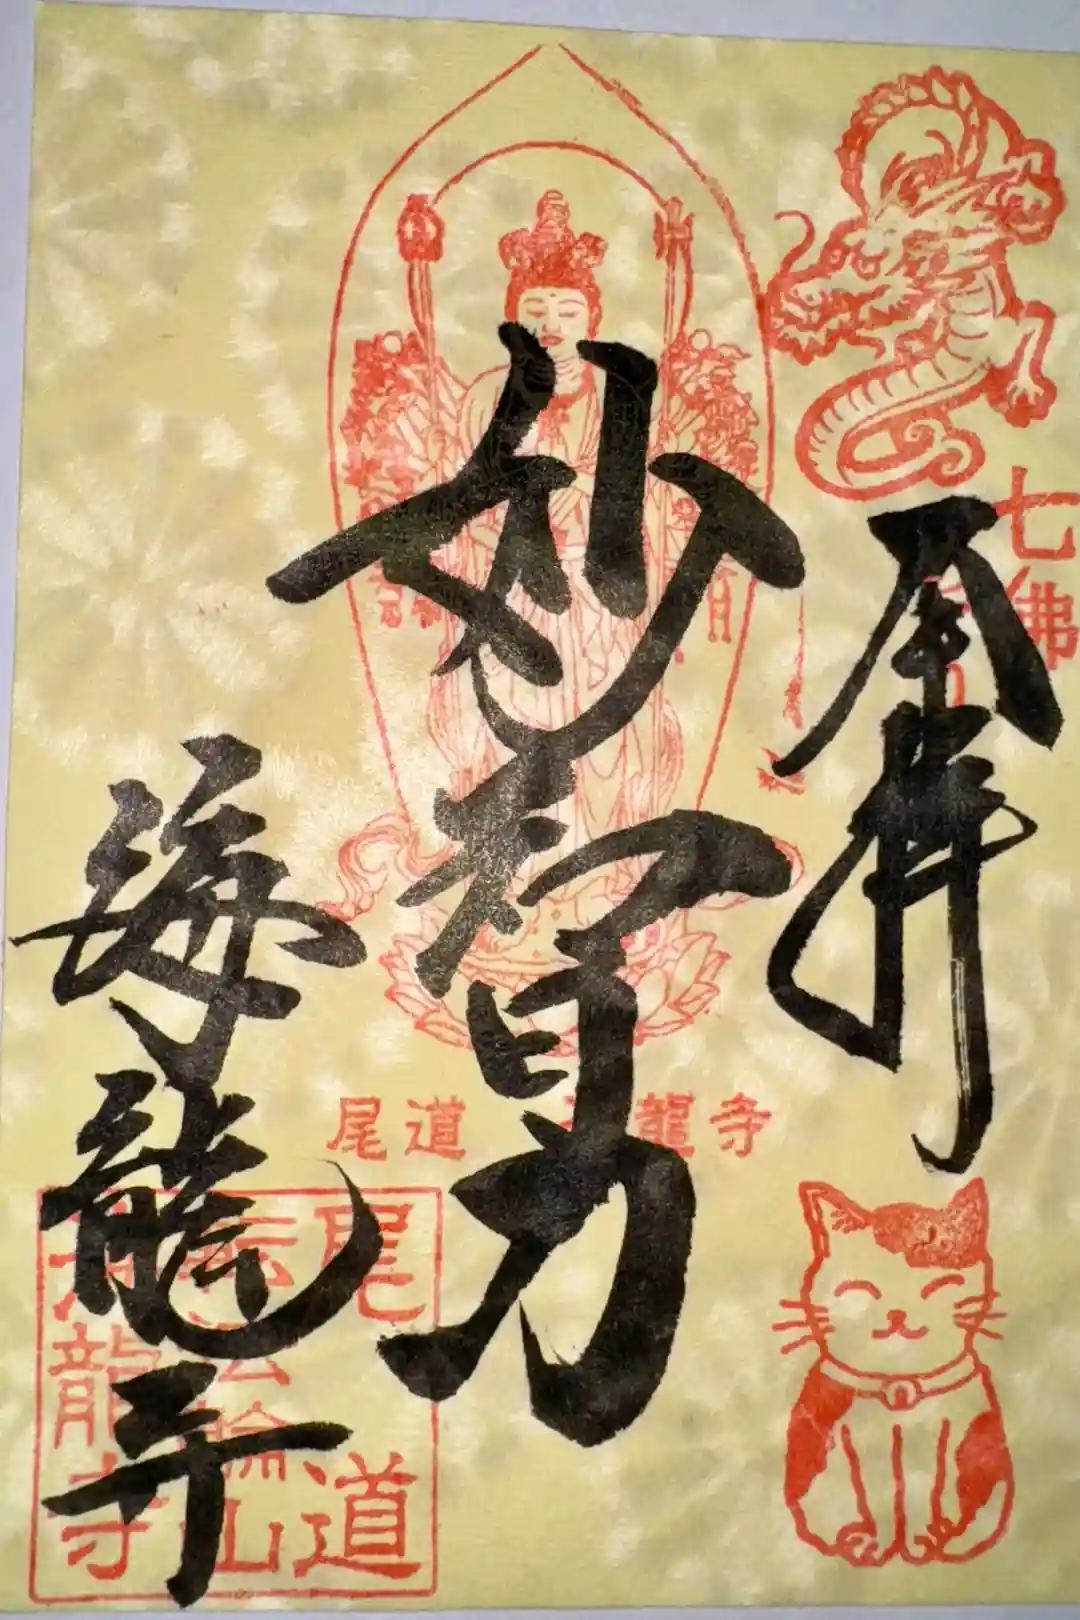 七佛
奉拝
妙智力
海龍寺
尾道 龍寺
尾道
転法輪山
海龍寺